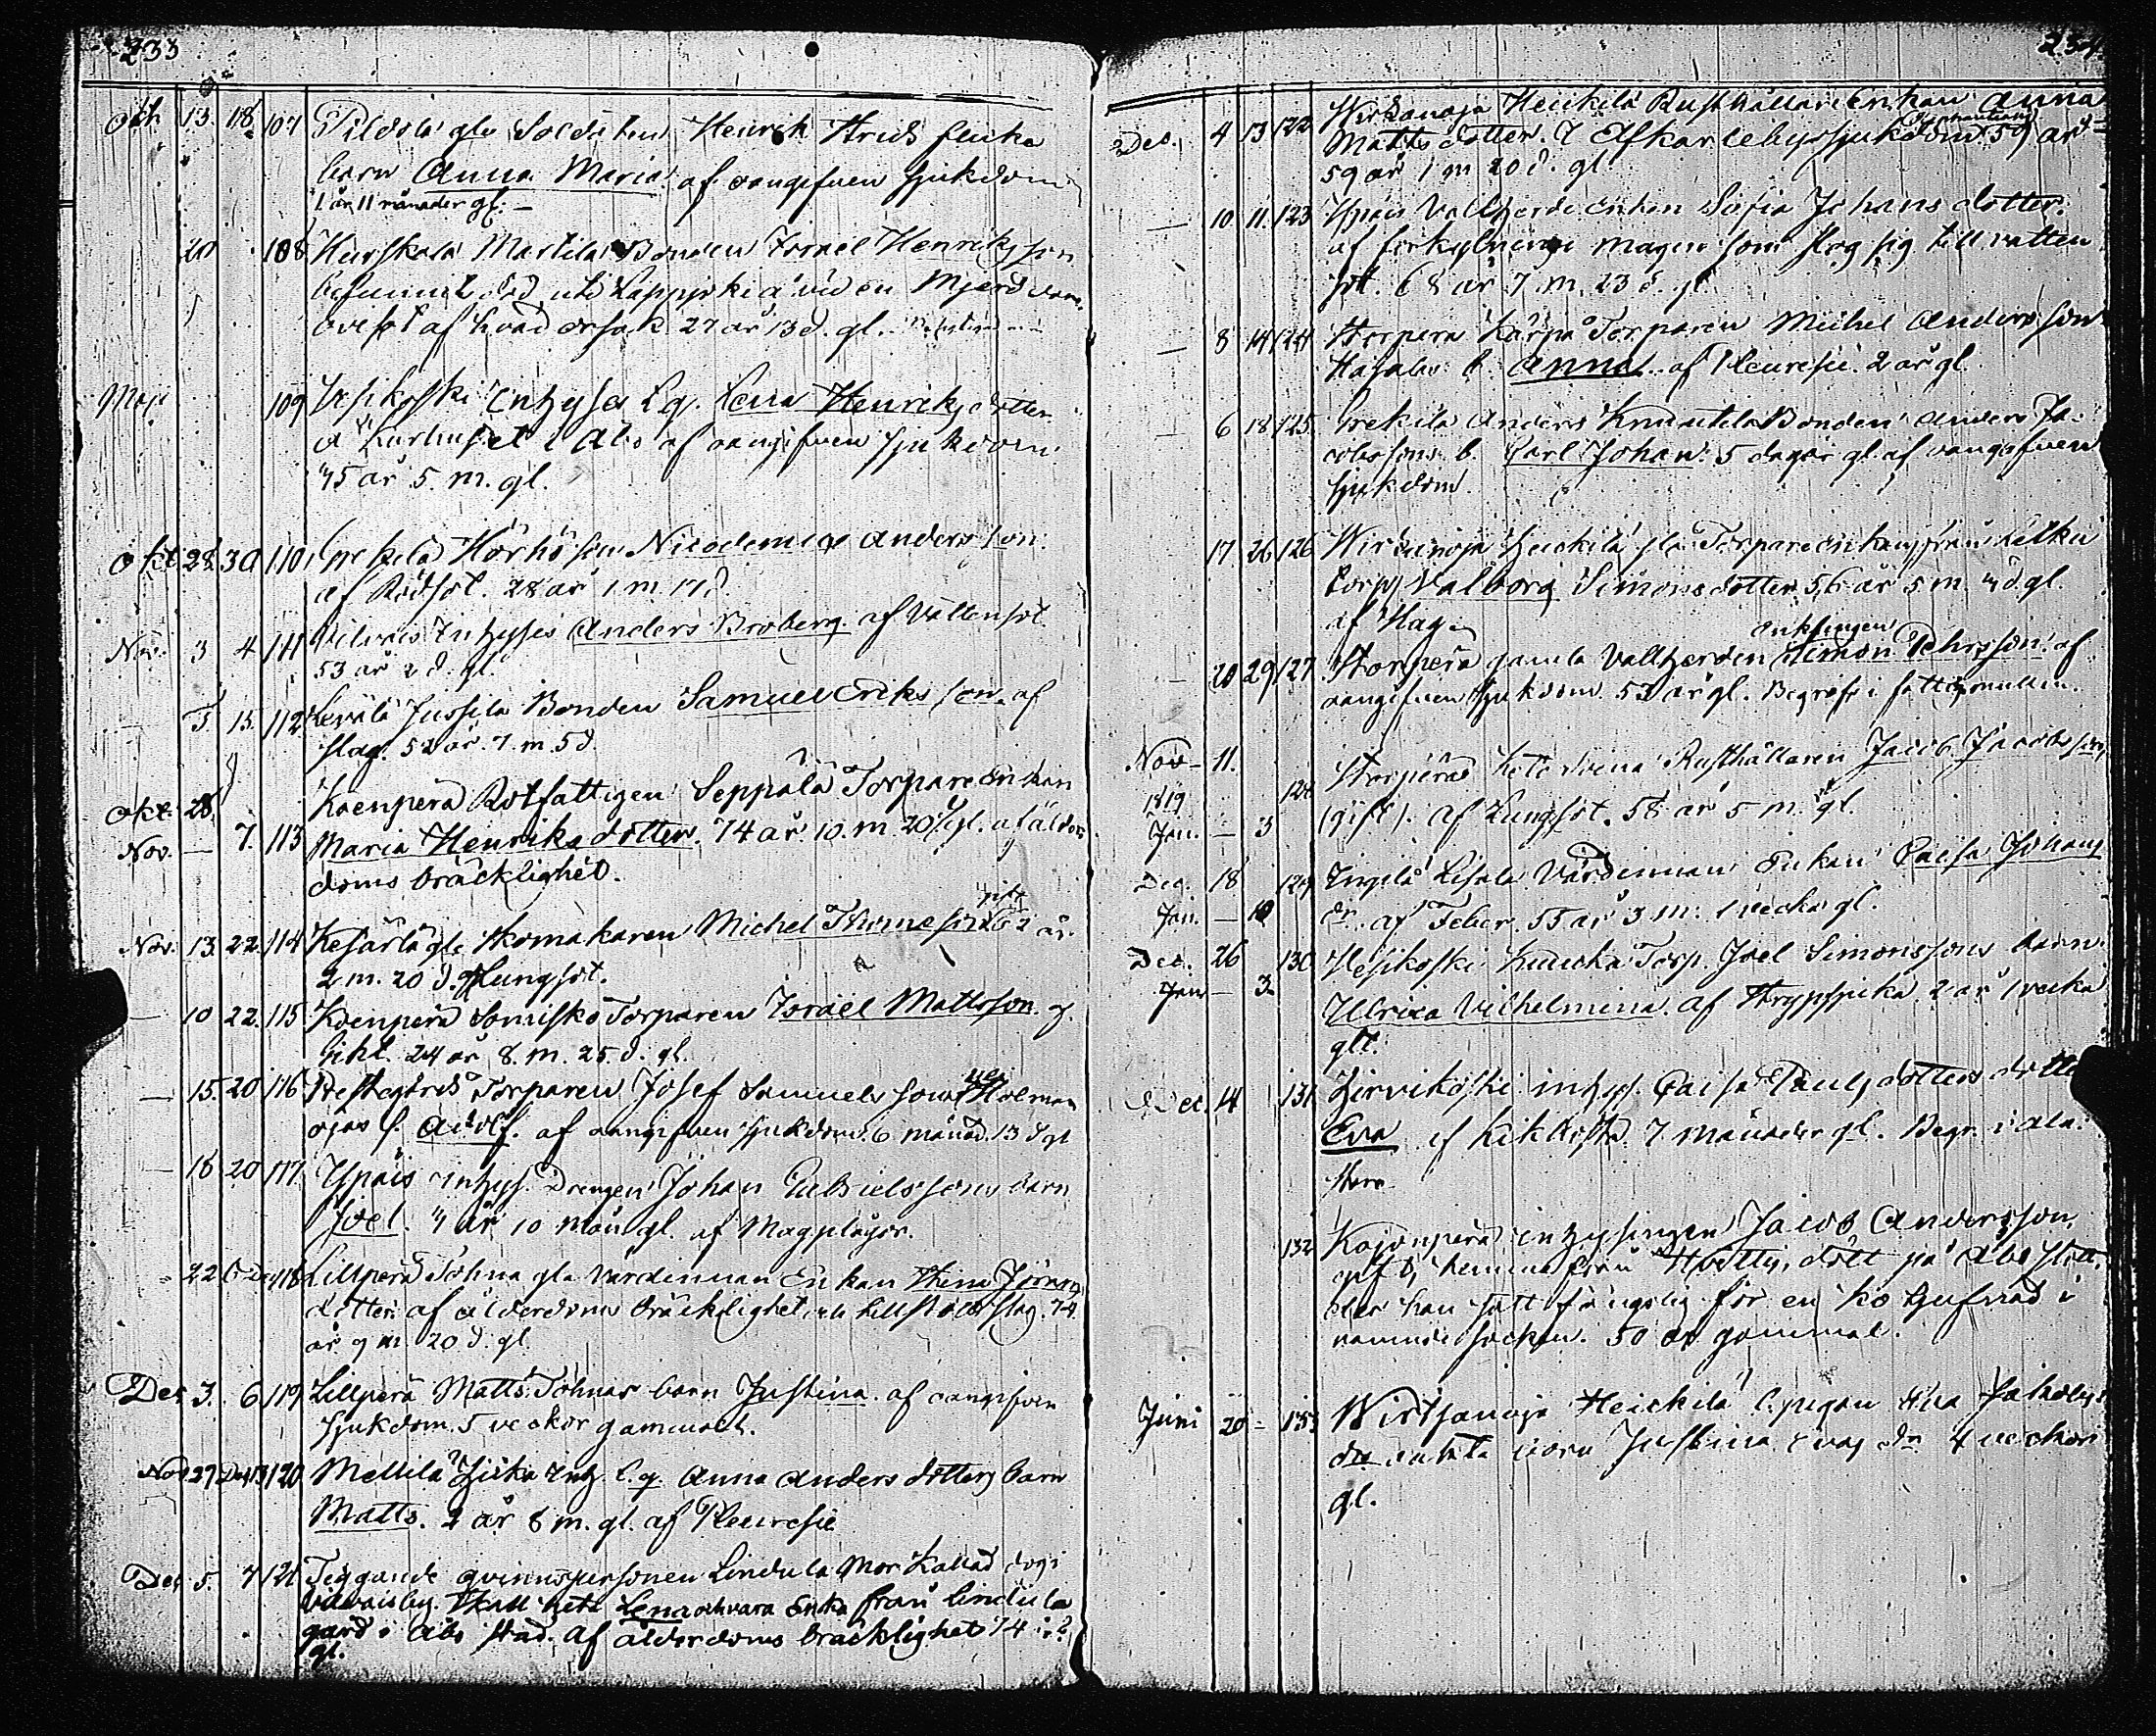 233
Okt. 13. 18. 107 Pildola gle Soldaten Henrik Strids flicka
barn Anna Maria af oangifven sjukdom
1 år 11 månader gl. —
20 108 Hurskala Martila Bonden Israel Henriksson
befunnit död uti Lappjoki å vid en Mjerd
af hvad orsak 27 år 13 d. gl.
Maji 109 Vesikoski Inhyses Lena Henriksdotter
å Kurhuset i Åbo af oangifven sjukdom
45 år 5. m. gl.
Okt. 28 30 110 Grekilä Hörhö son Nicodemus Andersson
af Rödsot. 28 år 1 m. 17 d.
Nov. 3 4 111 Vilvais Inhyses Anders Broberg af Vattensot
53 år 2 d. gl.
— 5. 15. 112 Levälä Jussila Bonden Samuel Eriksson af
slag. 52 år. 7. m. 5 d.
Okt. 28. Koenperä Rotfattigen Seppälä Torpare Enkan
Nov. — 7. 113 Maria Henriksdotter. 74 år 10. m. 20 d. gl. af ålder-
doms bräcklighet.
Nov. 13. 22. 114 Kesärlä gle Skomakaren Michel Thomesson gift 62 år
2 m. 20 d. af Lungsot.
— 10 22. 115 Koenperä Torparen Israel Mattsson g.
24 år 8. m. 25. d. gl.
— 15. 20 116 Prestegårds Torparen Josef Samuelsson Holman
Adolf. af oangifven sjukdom. 6 månad. 13 d gl
— 18 20 117. Ypäis inhys. Drengen Johan Gabrielssons barn
Joel. 4 år 10 mån gl. af Magplågor.
22 118 Lillperä Töhna gla Värdinnan Enkan Stina Jörans
dotter. af ålderdoms bräcklighet och tillstött slag. 74
år 9 m. 20 d. gl.
Dec 3. 6 119 Lillperä Matts Töhnas barn Justina. af oangifven
sjukdom. 5 veckor gammalt.
Nov. 27 Dec 13 120 Mellilä Inh. Anna Andersdotters barn
Matts. 2 år 8 m. gl. af Pleuresie
Dec 5. 7 121 Tiggande qvinnspersonen Lindula Mor kallad dog i
Vilvais by. Skall heta Lena och vara Enka från Lindula
gård i Åbo stad. af ålderdoms bräcklighet 74 år
gl.
234
Dec. 4 13 122 Wirsanoja Heickilä Rusthållare Enkan Anna
Mattsdotter. i Elfkarleby sjukdom 59 år
59 år 1 m 20 d. gl.
— 10 11. 123 Ypäis Vallherde enkan Sofia Johansdotter.
af förkylning i magen som slog sig till vatten
sot. 68 år 7. m. 23 d. gl.
— 8 14 124 Storperä Kärpä Torparen Michel Andersson
b. Anna af Pleuresie. 2 år gl.
— 6 18 125. Grekilä Anders Knuutila Bonden Anders Ja-
cobssons b. Carl Johan. 5 dagar gl. af oangifven
sjukdom.
17. 26 126 Wirsanoja Heickilä gla Torpare enkan från
torp Valborg Simonsdotter 56 år 5 m. 4 d. gl.
af Slag.
enklingen
— 20 29 127. Storperä gamla Vallherden Simon Pehrsson af
oangifven sjukdom. 53 år gl. Begrofs i fattigmullen.
Nov. — 11. Storperä Rusthållaren Jacob Jacobsson
1819 128
Jan. — 3 (gift). af Lungsot. 58 år 5 m. gl.
Dec. 18 129 Lisala Värdinnan Enkan Caisa Johans
Jan. — 10 dr. af Feber. 55 år 3 m. 1 vecka gl.
Dec. 26 130. Vesikoski Torp. Joel Simonssons barn
Jan — 3. Ulrica Vilhelmina. af Strypsjuka. 2 år 1 vecka
glt.
Dec. 14 131 Hirvikoski inhys. Caisa Paulsdotters dotter
Eva af Kikhosta. 7 månader gl. Begr. i Ala-
staro
132 Kojonperä inhysingen Jacob Andersson,
gift, hemma från Huittis, dött på Åbo slott,
der han sutt fängslig för en ko tjufnad i
nämnde socken. 50 år gammal.
Juni 20 — 133 Wirtsanoja Heickilä l. pigan Jakobs
dr oäkta barn Justina Evas dr 4 veckor
gl.